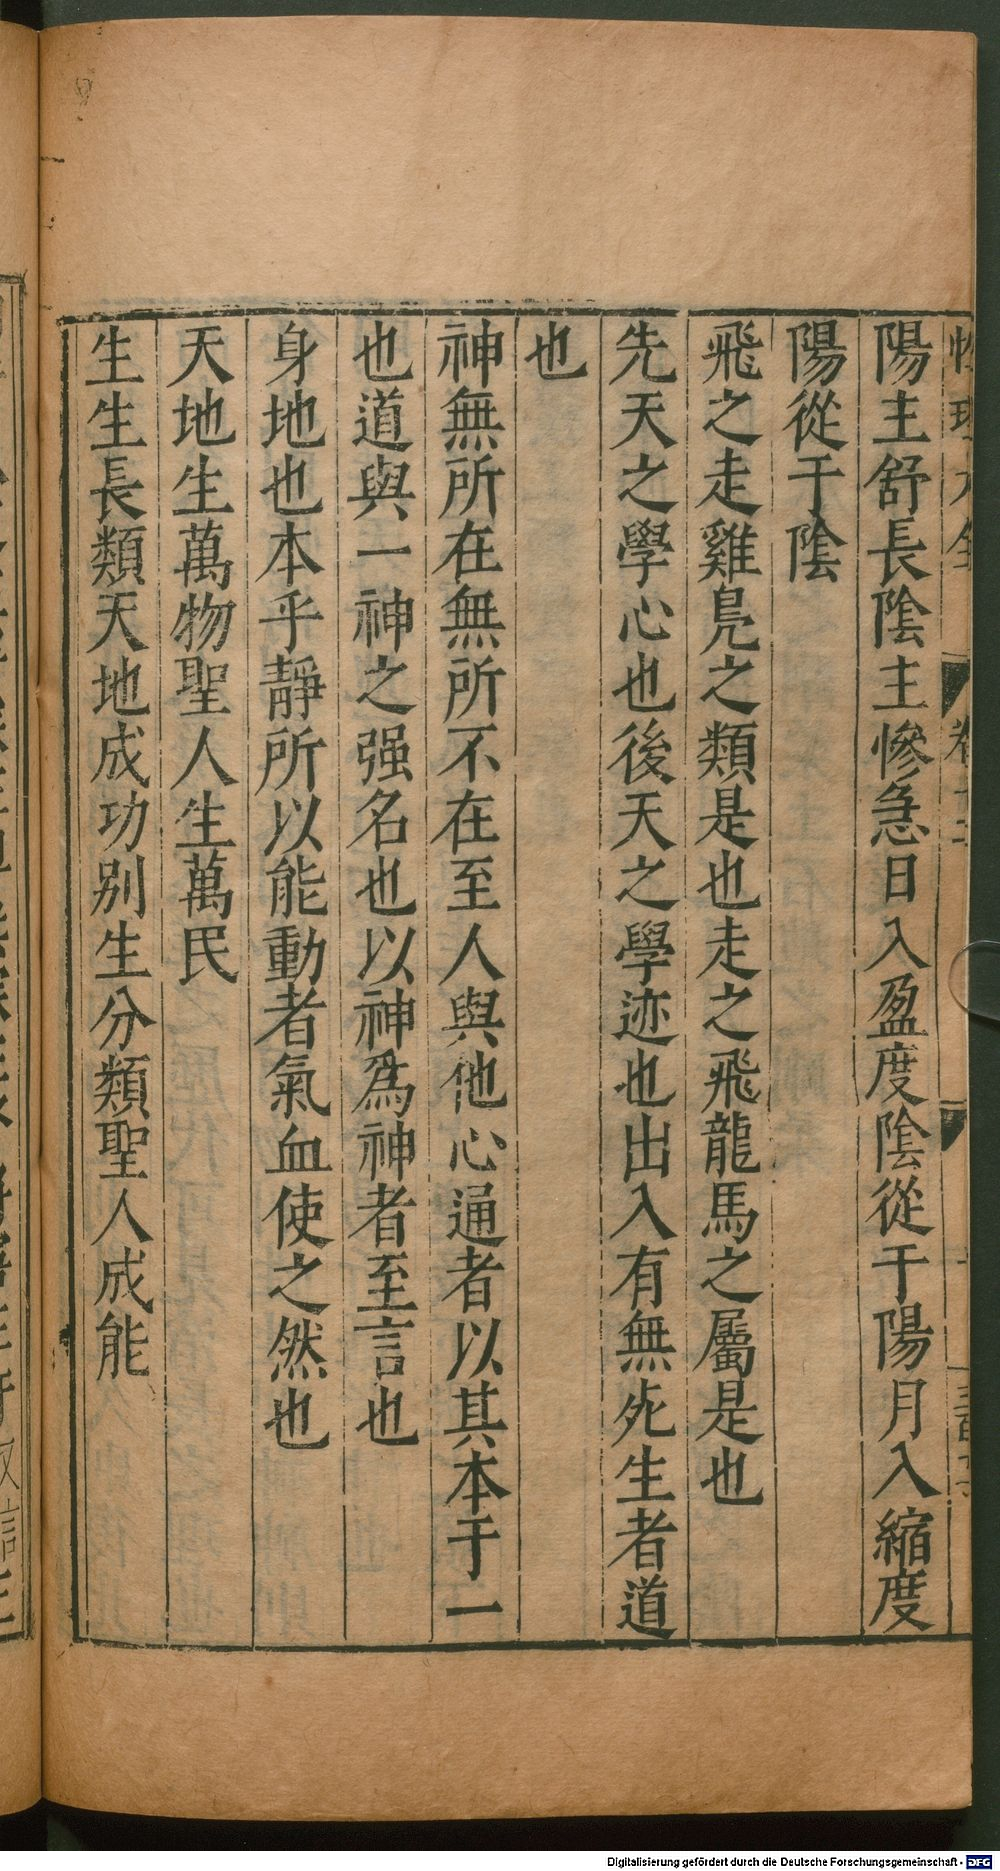 陽主舒長陰主慘急日入盈度陰從于陽月入縮度
陽從于陰
飛之走雞鳧之類是也走之飛龍馬之屬是也
先天之學心也後天之學迹也出入有無死生者道
也
神無所在無所不在至人與他心通者以其本于一
也道與一神之强名也以神爲神者至言也
身地也本乎靜所以能動者氣血使之然也
天地生萬物聖人生萬民
生生長類天地成功别生分類聖人成能
Digitalisierung gefördert durch die Deutsche Forschungsgemeinschaft - DFG